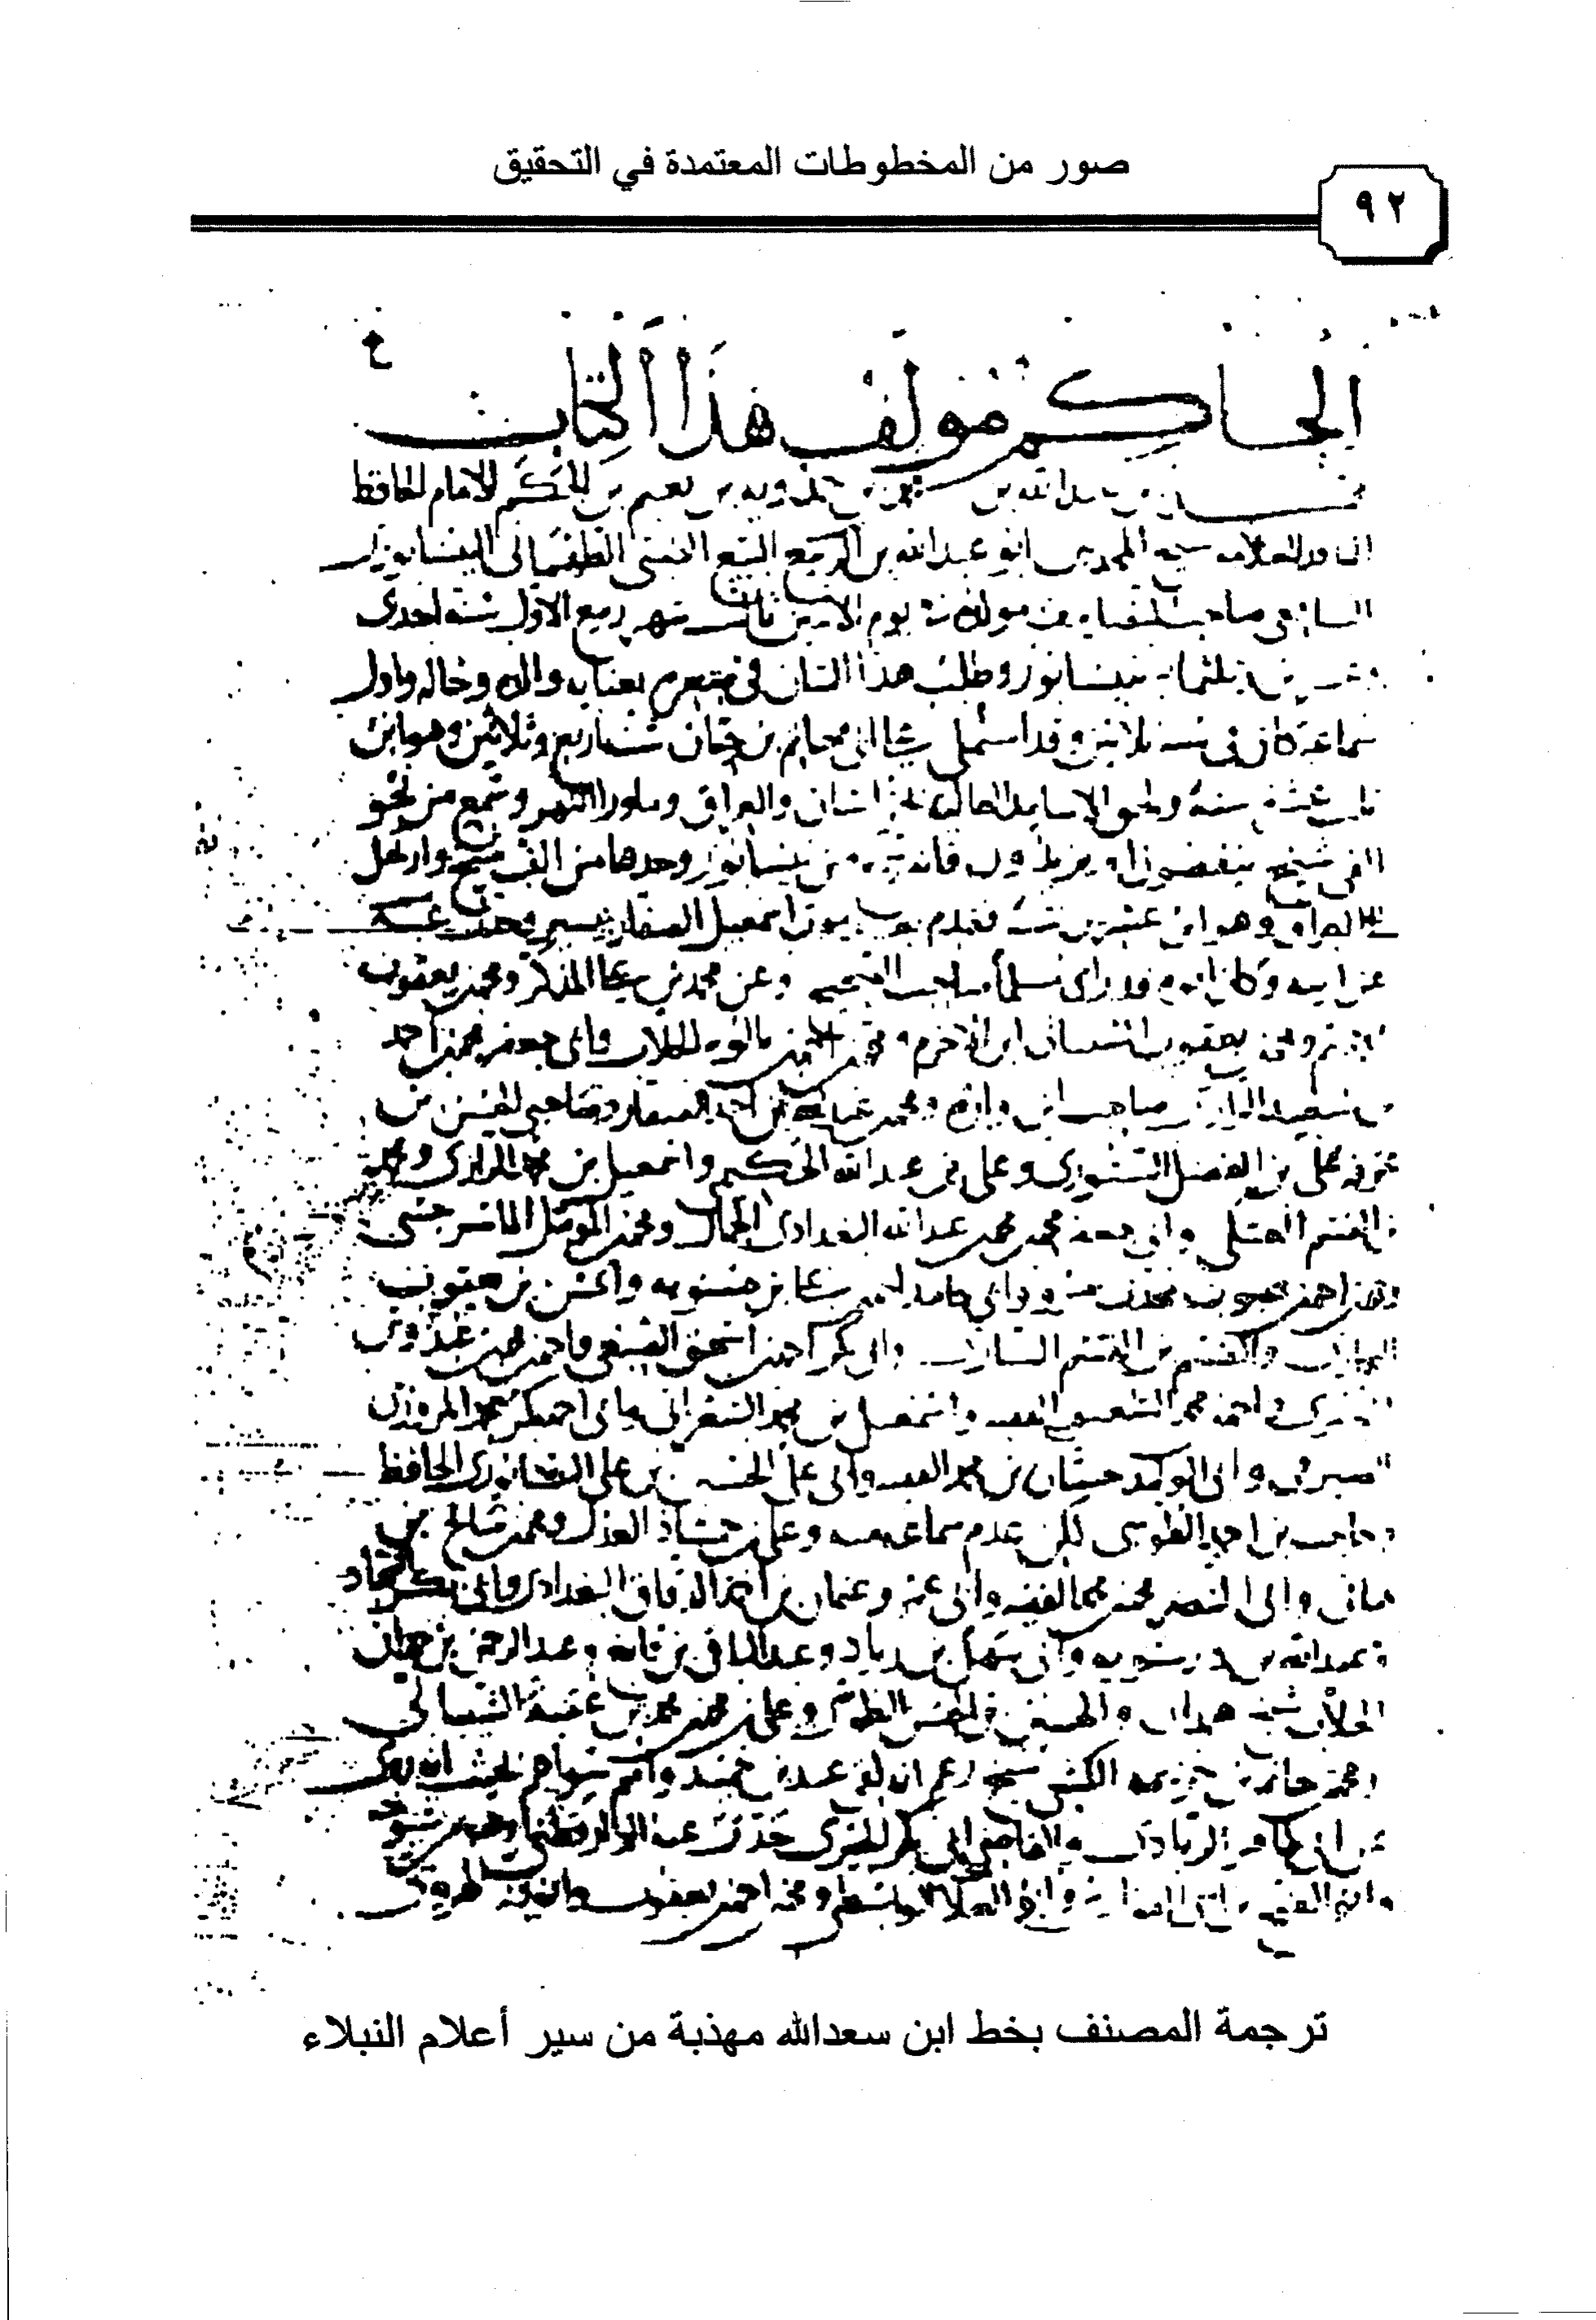 صور من المخطوطات المعتمدة في التحقيق
٩٢
الحاكم مؤلف هذا الكتاب
بن عبدالله بن محمد بن حمدويه بن نعيم بن الحكم الامام الحافظ
العلامه شيخ المحدثين ابو عبدالله بن البيع الضبي الطهماني النيسابوري
الشافعي صاحب التصانيف مولده يوم الاثنين ثالث شهر ربيع الاول سنه احدى
وعشرين وثلثمايه بنيسابور وطلب هذا الشان في صغره بعنايه والده وخاله واول
سماعه كان في سنه ثلاثين وقد استملى على ابي حاتم بن حبان سنه اربع وثلاثين وهو ابن
ثلث عشره سنه ولحق الاسانيد العاليه بخراسان والعراق وماورا النهر وسمع من نحو
الفي شيخ ينقصون او يزيدون فانه سمع من نيسابور وحدها من الف شيخ وارتحل
الى العراق وهو ابن عشرين سنه فقدم بعد موت اسمعيل الصفار بيسير وحدث
عن ابيه وكان ابوه قد راى مسلما صاحب الصحيح وعن محمد بن علي المذكر ومحمد بن يعقوب
ومحمد بن يعقوب الشيباني ابن الاخرم ومحمد بن احمد بن بالويه الجلاب وابي جعفر محمد بن احمد
بن سعيد الرازي صاحب ابن واره ومحمد بن عبدالله بن احمد الصفار وصاحبي الحسن بن
عرفه علي بن الفضل الستوري وعلي بن عبدالله الحكيمي واسمعيل بن محمد الرازي ومحمد
بن القسم العتكي وابي جعفر محمد بن محمد بن عبدالله البغدادي الجمال ومحمد بن المومل الماسرجسي
ومحمد بن احمد بن محبوب محدث مرو وابي حامد احمد بن علي بن حسنويه والحسن بن يعقوب
البخاري والقسم بن القسم السياري وابي بكر احمد بن اسحق الصبغي واحمد بن محمد بن عبدوس
العنزي واحمد بن محمد الشعيبي الفقيه واسمعيل بن محمد الشعراني وابي احمد بكر بن محمد المروزي
الصيرفي وابي الوليد حسان بن محمد الفقيه وابي علي الحسين بن علي النيسابوري الحافظ
وحاجب بن احمد الطوسي لكن عدم سماعه منه وعلي بن حمشاذ العدل ومحمد بن صالح بن
هانئ وابي النضر محمد بن محمد الفقيه وابي عمرو عثمان بن احمد الدقاق البغدادي وابي بكر النجاد
وعبدالله بن درستويه وابي سهل بن زياد وعبد الباقي بن قانع وعبد الرحمن بن حمدان
الجلاب شيخ همدان والحسين بن الحسن الطوسي وعلي بن محمد بن محمد بن عقبة الشيباني
ومحمد بن حاتم بن خزيمه الكشي شيخ زعم انه لقي عبد بن حميد وامم سواهم بحيث انه روى
عن ابي طاهر الزيادي والقاضي ابي بكر الحيري حدث عنه الدارقطني وهو من شيوخه
وابو الفتح بن ابي الفوارس وابو العلا الواسطي ومحمد بن احمد بن يعقوب وابو ذر الهروي
ترجمة المصنف بخط ابن سعدالله مهذبة من سير أعلام النبلاء